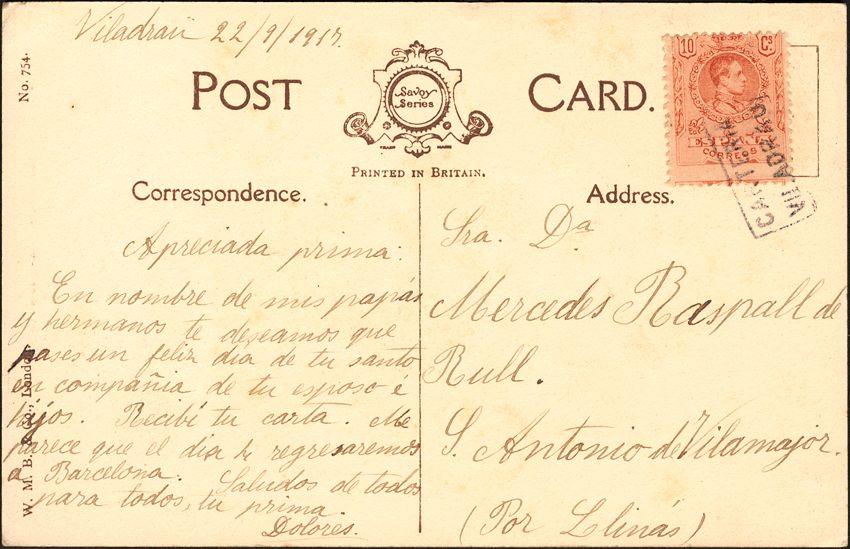 Viladrau 22/9/1917.
No. 754.
POST CARD.
Savoy
Series
TRADE MARK
PRINTED IN BRITAIN.
10 Cs
CORREOS
CARTERIA
VILADRAU
Correspondence.
Address.
Apreciada prima:
En nombre de mis papás
y hermanos te deseamos que
pases un feliz dia de tu santo
en compañia de tu esposo é
hijos. Recibí tu carta. Me
parece que el dia regresaremos
a Barcelona. Saludos de todos
para todos, tu prima.
Dolores.
Sra. Da
Mercedes Raspall de
Rull.
S. Antonio de Vilamajor.
(Por Llinás)
W. M. B. & Co., London.